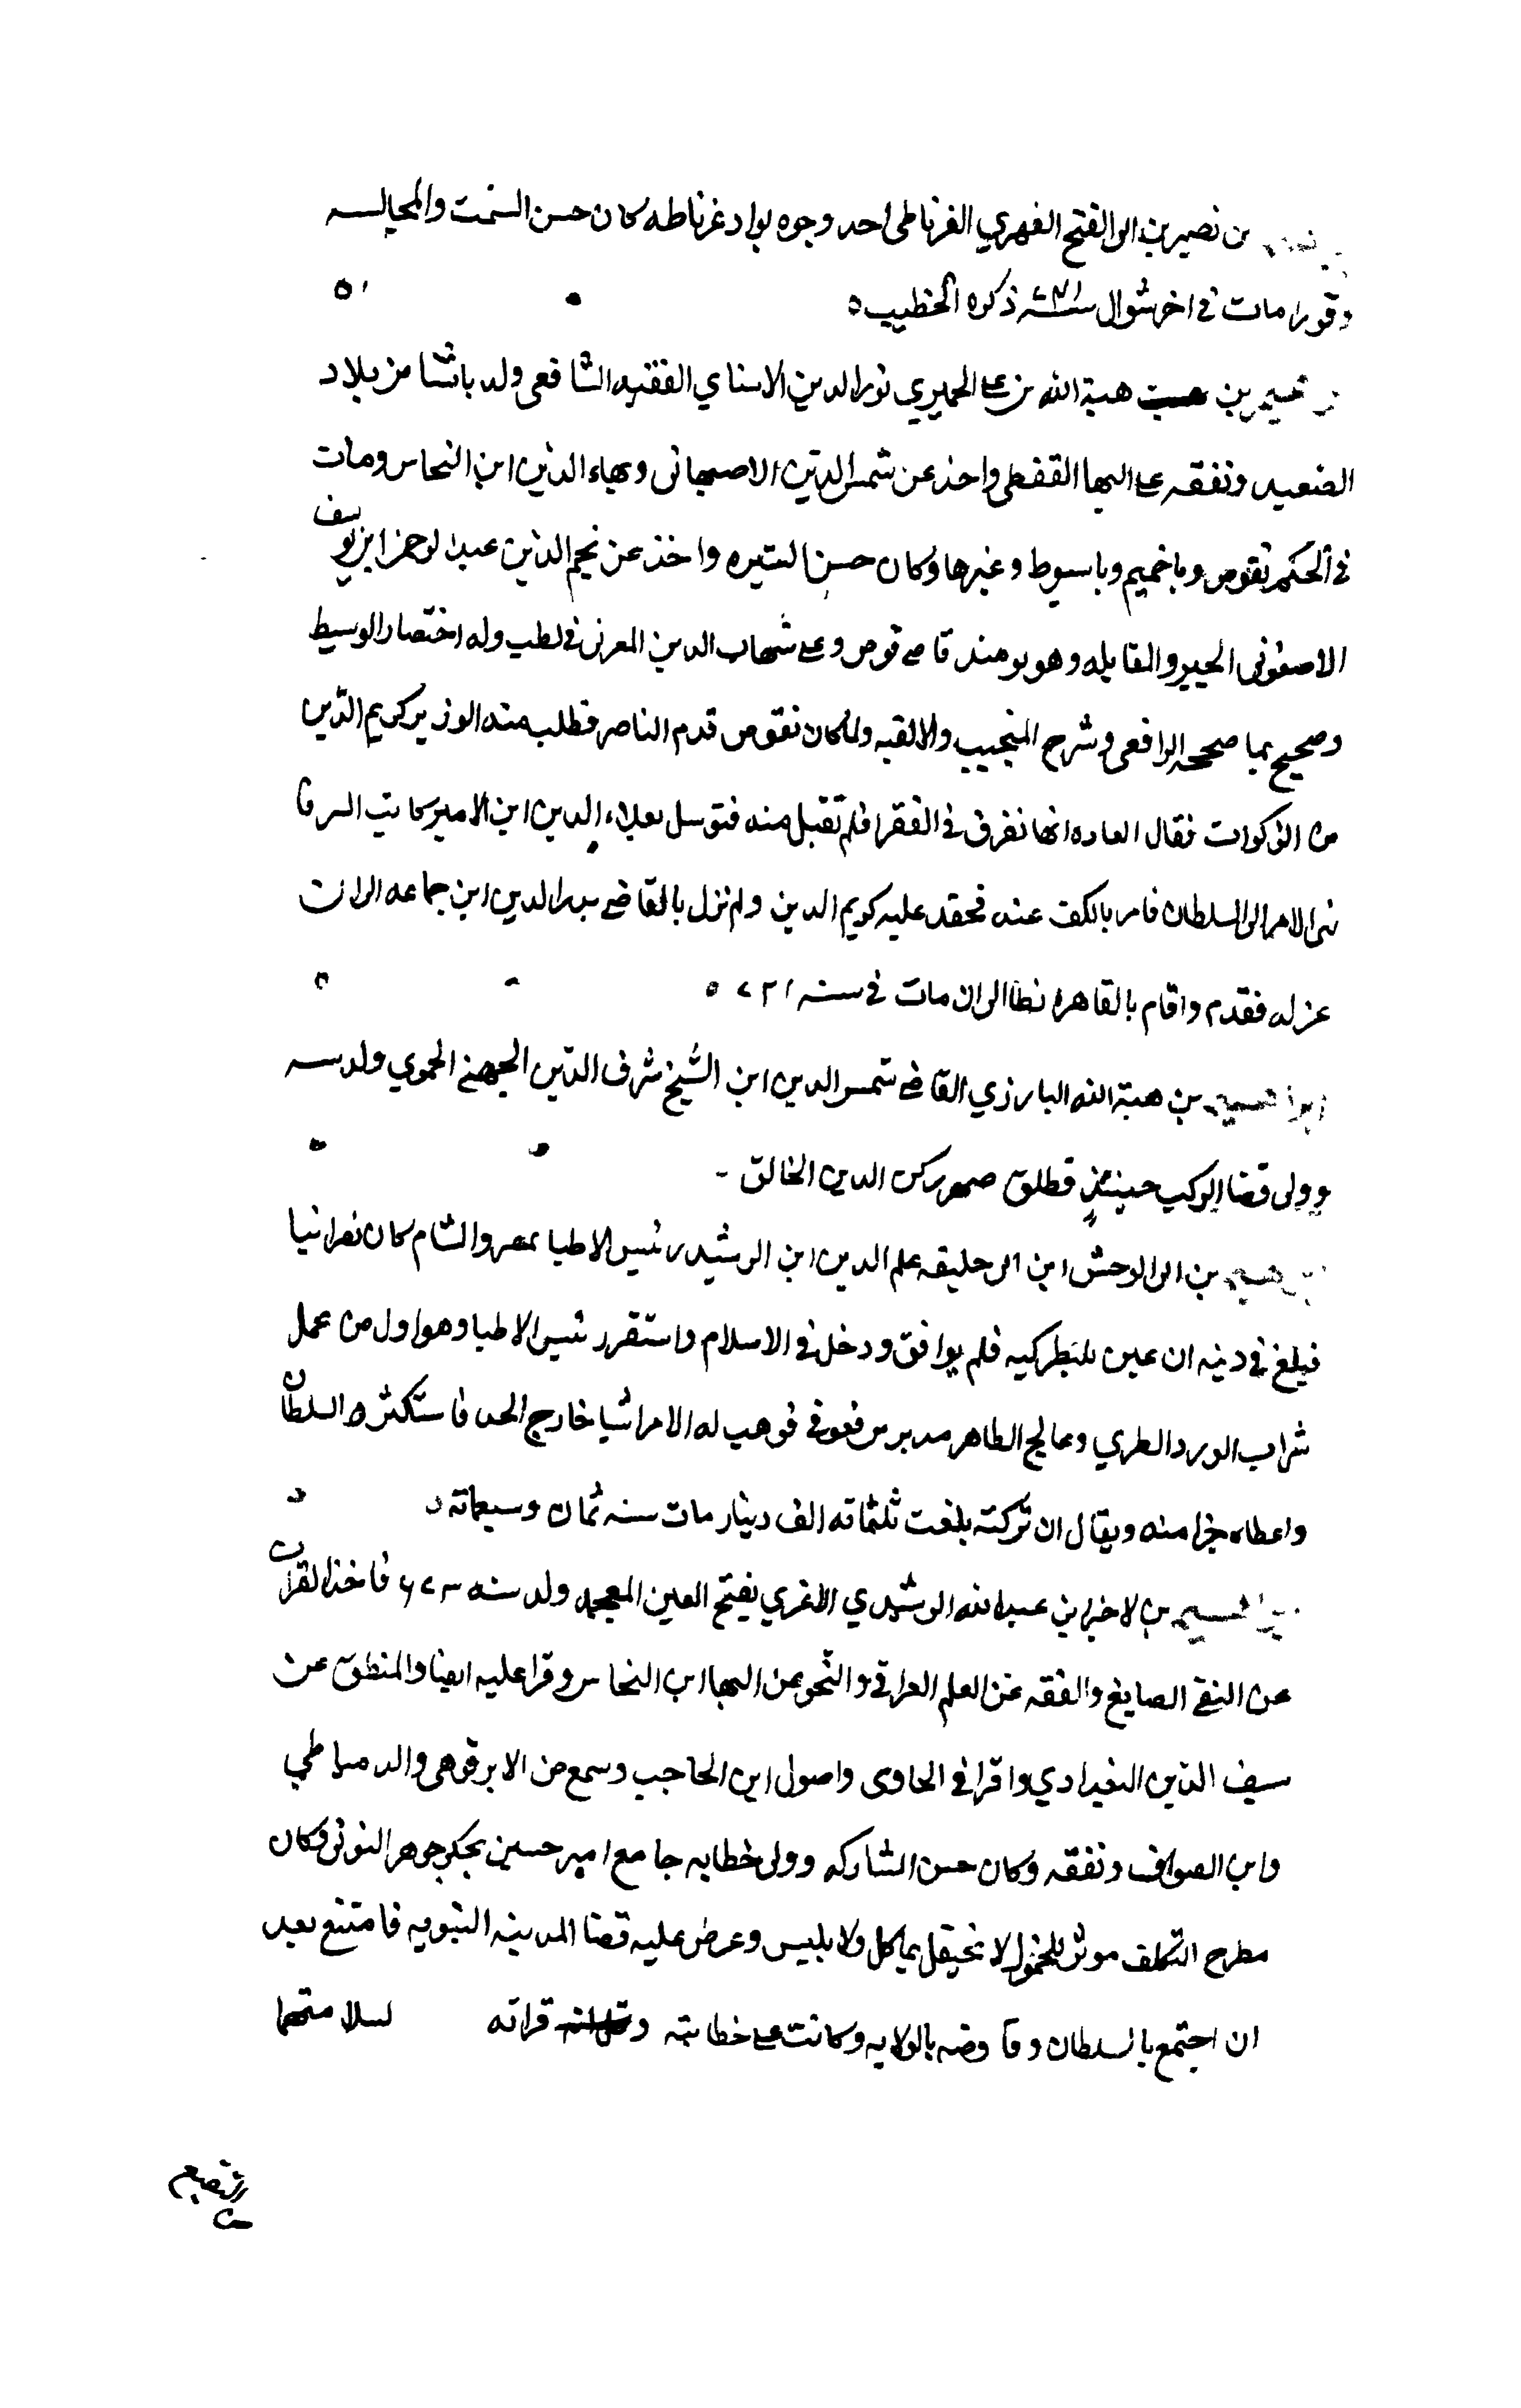 بن نصير بن ابى الفتح الفهري الغرناطى احد وجوه بواد غرناطه كان حسن السمت والمجالسه
وقورا مات فى اخر شوال ذكره الخطيب
بن هبة الله بن على الحميري نور الدين الاسناي الفقيه الشافعى ولد باسنا من بلاد
الصعيد وتفقه على البها القفطى واخذ عن شمس الدين الاصبهانى وبهاء الدين ابن النحاس ومات
فى الحكم بقوص وباخميم وباسيوط وغيرها وكان حسن السيره واخذ عن نجم الدين عبد الرحمن ابن يوسف
الاصفونى الجبر والمقابله وهو يومئذ قاضى قوص وعلى شهاب الدين المغربى فى لطب وله اختصار الوسيط
وصحيح بما صححه الرافعى وشرح المنتخب والالفيه ولما كان بقوص قدم الناصر فطلب منه الوزير كريم الدين
من الزكوات فقال العاده انها تفرق فى الفقرا فلم تقبل منه فتوسل بعلاء الدين ابن الامير كاتب السر فا
نهى الامر الى السلطان فامر بالكف عنه فحقد عليه كريم الدين ولم نزل بالقاضى بدر الدين ابن جماعه الى ان
عزله فقدم واقام بالقاهره الى ان مات فى سنه ٧٢١
بن هبة الله البارزي القاضى شمس الدين ابن الشيخ شرف الدين الجهنى الحموي ولد سنه
وولى قضا الركب حينئذ قطلق صهر ركن الدين الخالق
بن ابى الوحش ابن ابى حليقه علم الدين ابن الرشيد رئيس الاطبا بمصر والشام كان نصرانيا
فبلغ فى دينه ان عين للبطركيه فلم يوافق ودخل فى الاسلام واستقر رئيس الاطبا وهو اول من عمل
شراب الورد الطري وعالج الظاهر مدبرس فعوفى فوهب له الامرا شيا خارج الحد فاستكثره السلطان
واعطاه جزا منه ويقال ان تركته بلغت ثلثمائه الف دينار مات سنه ثمان وسبعمائه
بن لاجين بن عبد الله الرشيدي الاغري بفتح الغين المعجمه ولد سنه ٦٧٣ فاخذ القران
عن التقى الصايغ والفقه عن العلم العراقى والنحو عن البها ابن النحاس وقرا عليه ايضا والمنطق عن
سيف الدين البغدادي واقرا فى الحاوى واصول ابن الحاجب وسمع من الابرقوهى والدمياطي
وابن الصواف وتفقه وكان حسن المشاركه وولى خطابه جامع امير حسين بحكر جوهر النوبى وكان
مطرح التكلف موثر للخمول لا يحتفل بماكل ولا بلبس وعرض عليه قضا المدينه النبويه فامتنع بعد
ان اجتمع بالسلطان وفاوضه بالولايه وكانت على خطابته و قراته لسلامتهما